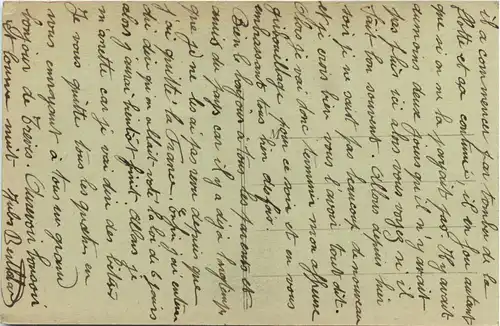 il a commencer par tomber de la
flotte et ça continue, il en fau autant
que si on ne la payait pas. Il y avait
aumoins deux jours qu'il n'y avait
pas plus ici alors vous voyez si il
fait bon souvent. Allons depuis hier
soir je ne sait pas beaucoup de nouveau
et je crois bien vous l'avoir tout dit.
Alors je vai donc terminer mon affreux
gribouillage pour ce soir et en vous
embrassant tous bien des fois.
Bien le bonjour à tous les parents et
amis du pays car il y a déjà longtemps
que je ne les ai pas revu depuis que
j'ai quitté la France. Enfin j'ai entendu
du dire qu'on allait voté la loi de 6 jours
alors j'aurai bientôt fait. Allons je
m'arrette car je vai dir des bêtises
Je vous quitte tous les quatre en
vous envoyant à tous un grand
bonjour de Trèves. Aurevoir bonsoir
et bonne nuit Jules